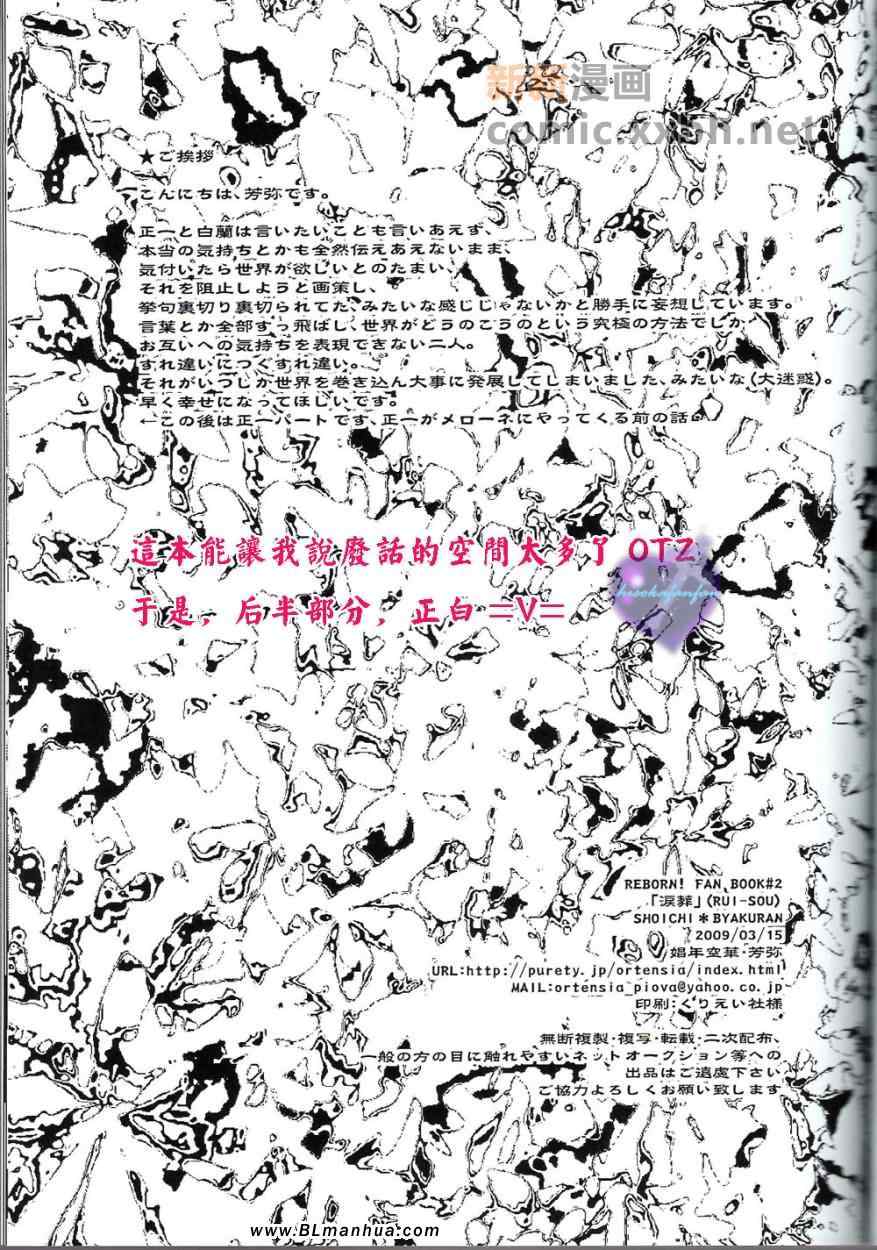 新新漫画
comic.xxbh.net
★ご挨拶
こんにちは、芳弥です。
正一と白蘭は言いたいことも言いあえず、
本当の気持ちとかも全然伝えあえないまま、
気付いたら世界が欲しいとのたまい、
それを阻止しようと画策し、
挙句裏切り裏切られてた、みたいな感じじゃないかと勝手に妄想しています。
言葉とか全部すっ飛ばし、世界がどうのこうのという究極の方法でしか
お互いへの気持ちを表現できない二人。
すれ違いにつぐすれ違い。
それがいつしか世界を巻き込ん大事に発展してしまいました、みたいな(大迷惑)。
早く幸せになってほしいです。
←この後は正一パートです、正一がメローネにやってくる前の話。
這本能讓我說廢話的空間太多了 OTZ
于是，后半部分，正白 =V=
hisokafanfan
REBORN! FAN BOOK#2
「涙葬」(RUI-SOU)
SHOICHI＊BYAKURAN
2009/03/15
娼年空華・芳弥
URL:http://purety.jp/ortensia/index.html
MAIL:ortensia_piova@yahoo.co.jp
印刷:くりえい社様
無断複製・複写・転載・二次配布、
一般の方の目に触れやすいネットオークション等への
出品はご遠慮下さい
ご協力よろしくお願い致します
www.BLmanhua.com